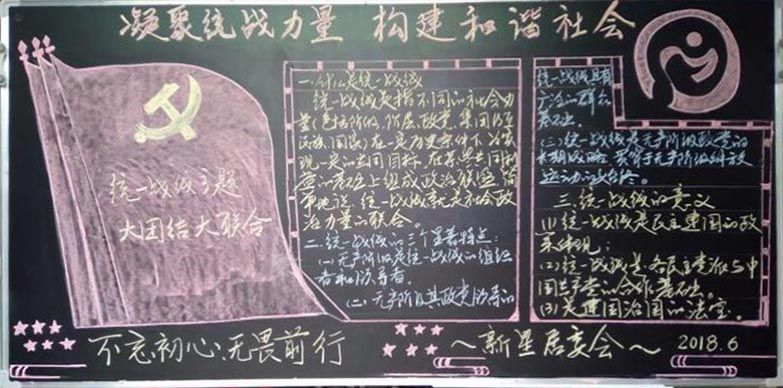 凝聚统战力量 构建和谐社会
统一战线主题
大团结大联合
一.什么是统一战线
统一战线是指不同的社会力
量(包括阶级、阶层、政党、集团乃至
民族、国家)在一定历史条件下,为实
现一定的共同目标,在某些共同利
益的基础上组成政治联盟,简
单地说,统一战线就是不同政
治力量的联合。
二.统一战线的三个显著特点:
(一)无产阶级是统一战线的组织
者和领导者。
(二).无产阶级及其政党领导的
统一战线具有
广泛的群众
基础。
(三)统一战线是无产阶级政党的
长期战略,贯穿于无产阶级解放
运动的始终。
三.统一战线的意义
(1)统一战线是民主建国的政
(2)统一战线是各民主党派与中
国共产党的合作基础。
(3)是建国治国的法宝。
不忘初心,无畏前行
～新星居委会～ 2018.6